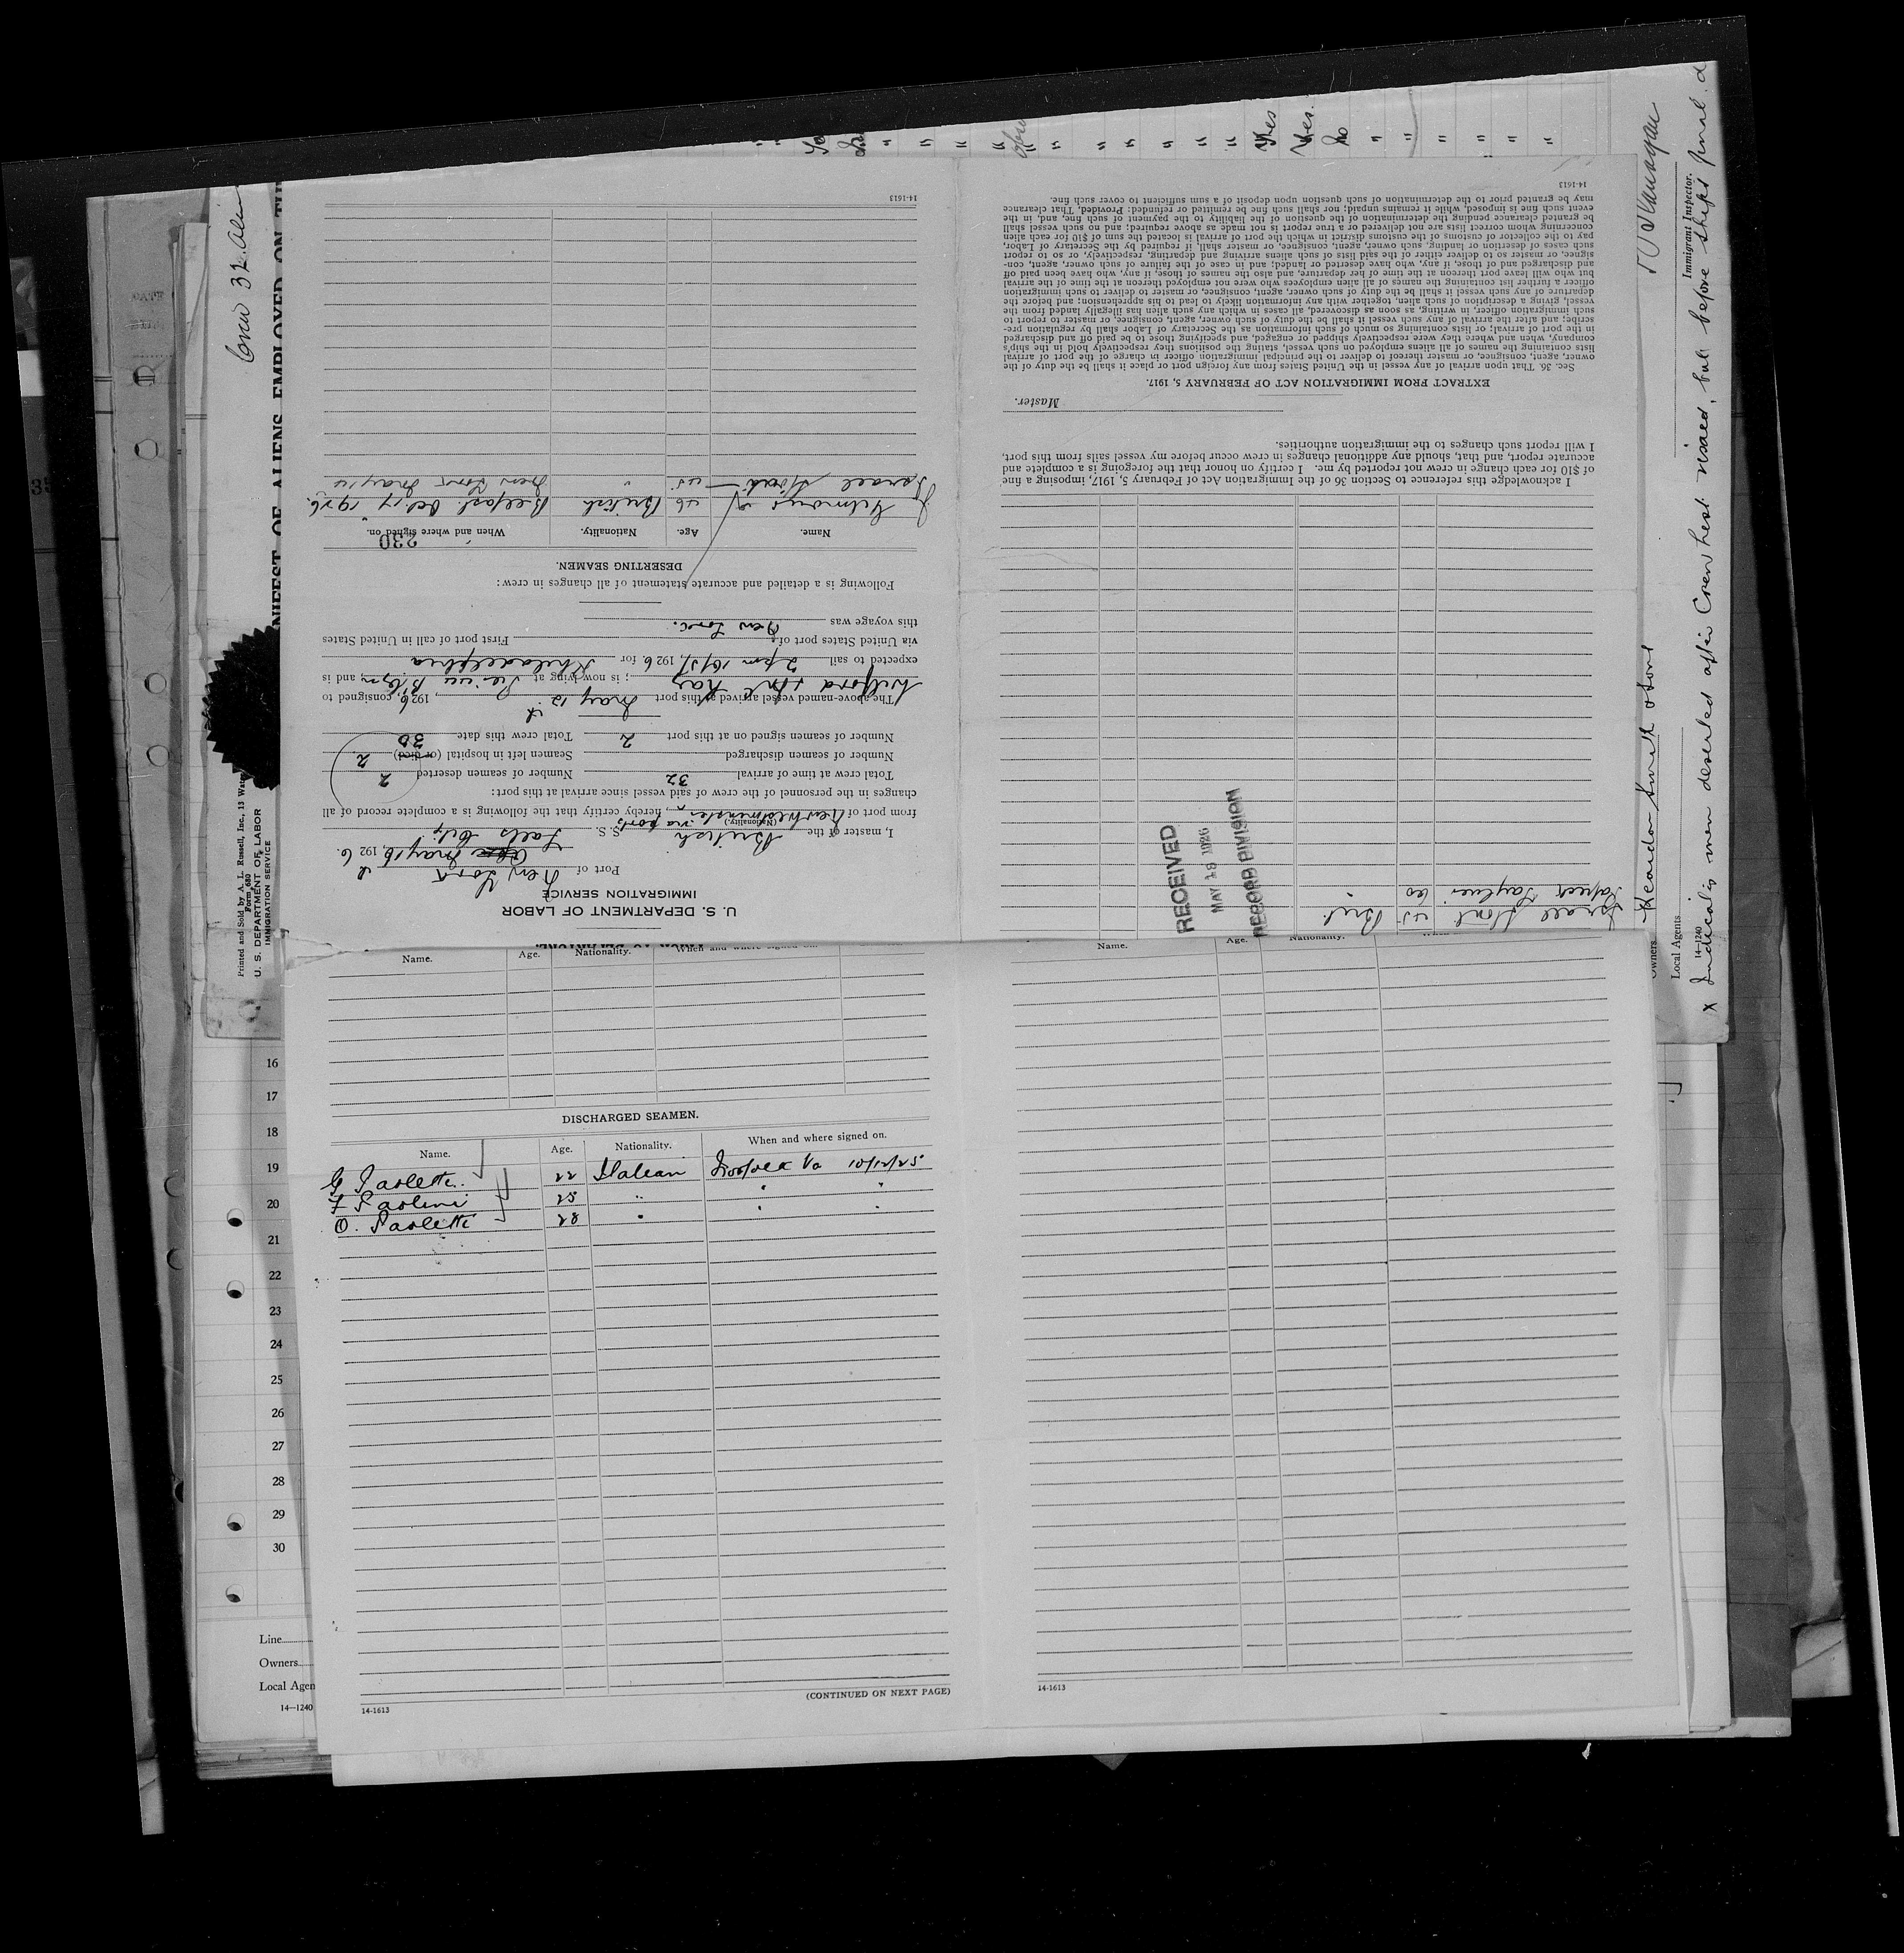 Crew 32.
MANIFEST OF ALIENS EMPLOYED ON THE
Printed and Sold by A. L. Russell, Inc., 13 Water
Form 680
U. S. DEPARTMENT OF LABOR
IMMIGRATION SERVICE
U. S. DEPARTMENT OF LABOR
IMMIGRATION SERVICE
Port of New York
May 16, 1926.
I, master of the British S. S.
(Nationality.)
from port of via ports, hereby certify that the following is a complete record of all
changes in the personnel of the crew of said vessel since arrival at this port:
Total crew at time of arrival 32 Number of seamen deserted 2
Number of seamen discharged Seamen left in hospital (or died) 2
Number of seamen signed on at this port 2 Total crew this date 30
The above-named vessel arrived at this port May 12, 1926, consigned to
; is now lying at and is
expected to sail 2 pm, 1926 for Philadelphia
via United States port of First port of call in United States
this voyage was New York.
Following is a detailed and accurate statement of all changes in crew:
DESERTING SEAMEN.
Name. Age. Nationality. When and where signed on.
230
46 British Belfast
Israel 45 " New York May 14
14-1613
Israel 45 Brit
60 "
RECEIVED
MAY 18 1926
RECORD DIVISION
I acknowledge this reference to Section 36 of the Immigration Act of February 5, 1917, imposing a fine
of $10 for each change in crew not reported by me. I certify on honor that the foregoing is a complete and
accurate report, and that, should any additional changes in crew occur before my vessel sails from this port,
I will report such changes to the immigration authorities.
Master.
EXTRACT FROM IMMIGRATION ACT OF FEBRUARY 5, 1917.
Sec. 36. That upon arrival of any vessel in the United States from any foreign port or place it shall be the duty of the
owner, agent, consignee, or master thereof to deliver to the principal immigration officer in charge of the port of arrival
lists containing the names of all aliens employed on such vessel, stating the positions they respectively hold in the ship's
company, when and where they were respectively shipped or engaged, and specifying those to be paid off and discharged
in the port of arrival; or lists containing so much of such information as the Secretary of Labor shall by regulation pre-
scribe; and after the arrival of any such vessel it shall be the duty of such owner, agent, consignee, or master to report to
such immigration officer, in writing, as soon as discovered, all cases in which any such alien has illegally landed from the
vessel, giving a description of such alien, together with any information likely to lead to his apprehension; and before the
departure of any such vessel it shall be the duty of such owner, agent, consignee, or master to deliver to such immigration
officer a further list containing the names of all alien employees who were not employed thereon at the time of the arrival
but who will leave port thereon at the time of her departure, and also the names of those, if any, who have been paid off
and discharged and of those, if any, who have deserted or landed; and in case of the failure of such owner, agent, con-
signee, or master so to deliver either of the said lists of such aliens arriving and departing, respectively, or so to report
such cases of desertion or landing, such owner, agent, consignee, or master shall, if required by the Secretary of Labor,
pay to the collector of customs of the customs district in which the port of arrival is located the sum of $10 for each alien
concerning whom correct lists are not delivered or a true report is not made as above required; and no such vessel shall
be granted clearance pending the determination of the question of the liability to the payment of such fine, and, in the
event such fine is imposed, while it remains unpaid; nor shall such fine be remitted or refunded: Provided, That clearance
may be granted prior to the determination of such question upon deposit of a sum sufficient to cover such fine.
14-1613
Yes
Yes.
Immigrant Inspector.
Owners
Local Agents
14-1240
x Indicates men deserted after Crew list visaed, but before ships final d
Name. Age. Nationality. When and where signed on.
DISCHARGED SEAMEN.
Name. Age. Nationality. When and where signed on.
G Paoletti. 22 Italian Norfolk Va 10/12/25.
F Paolini 25 " " "
O. Paoletti 28 " " "
(CONTINUED ON NEXT PAGE)
14-1613
Name. Age. Nationality.
14-1613
16
17
18
19
20
21
22
23
24
25
26
27
28
29
30
Line
Owners
Local Agen
14-1240